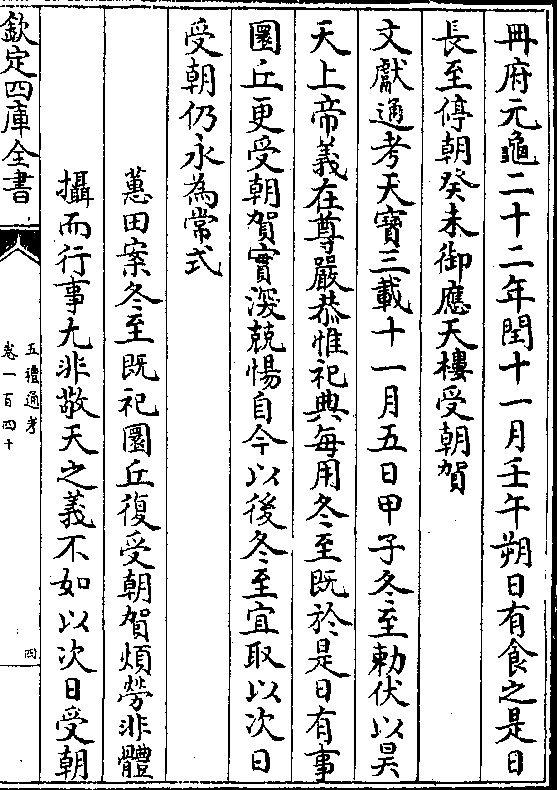 冊府元龜二十二年閏十一月壬午朔日有食之是日
長至停朝癸未御應天樓受朝賀
文獻通考天寶三載十一月五日甲子冬至勅伏以昊
天上帝義在尊嚴恭惟祀典每用冬至既於是日有事
圜丘更受朝賀實深兢惕自今以後冬至宜取以次日
受朝仍永為常式
蕙田案冬至既祀圜丘復受朝賀煩勞非體
攝而行事尤非敬天之義不如以次日受朝
欽定四庫全書
五禮通考
卷一百四十
四